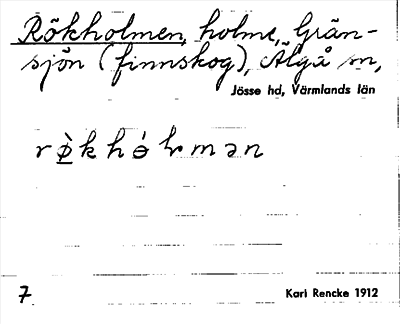 Rökholmen, holme, Grän-
sjön (finnskog), Älgå sn,
Jösse hd, Värmlands län
7
Karl Rencke 1912